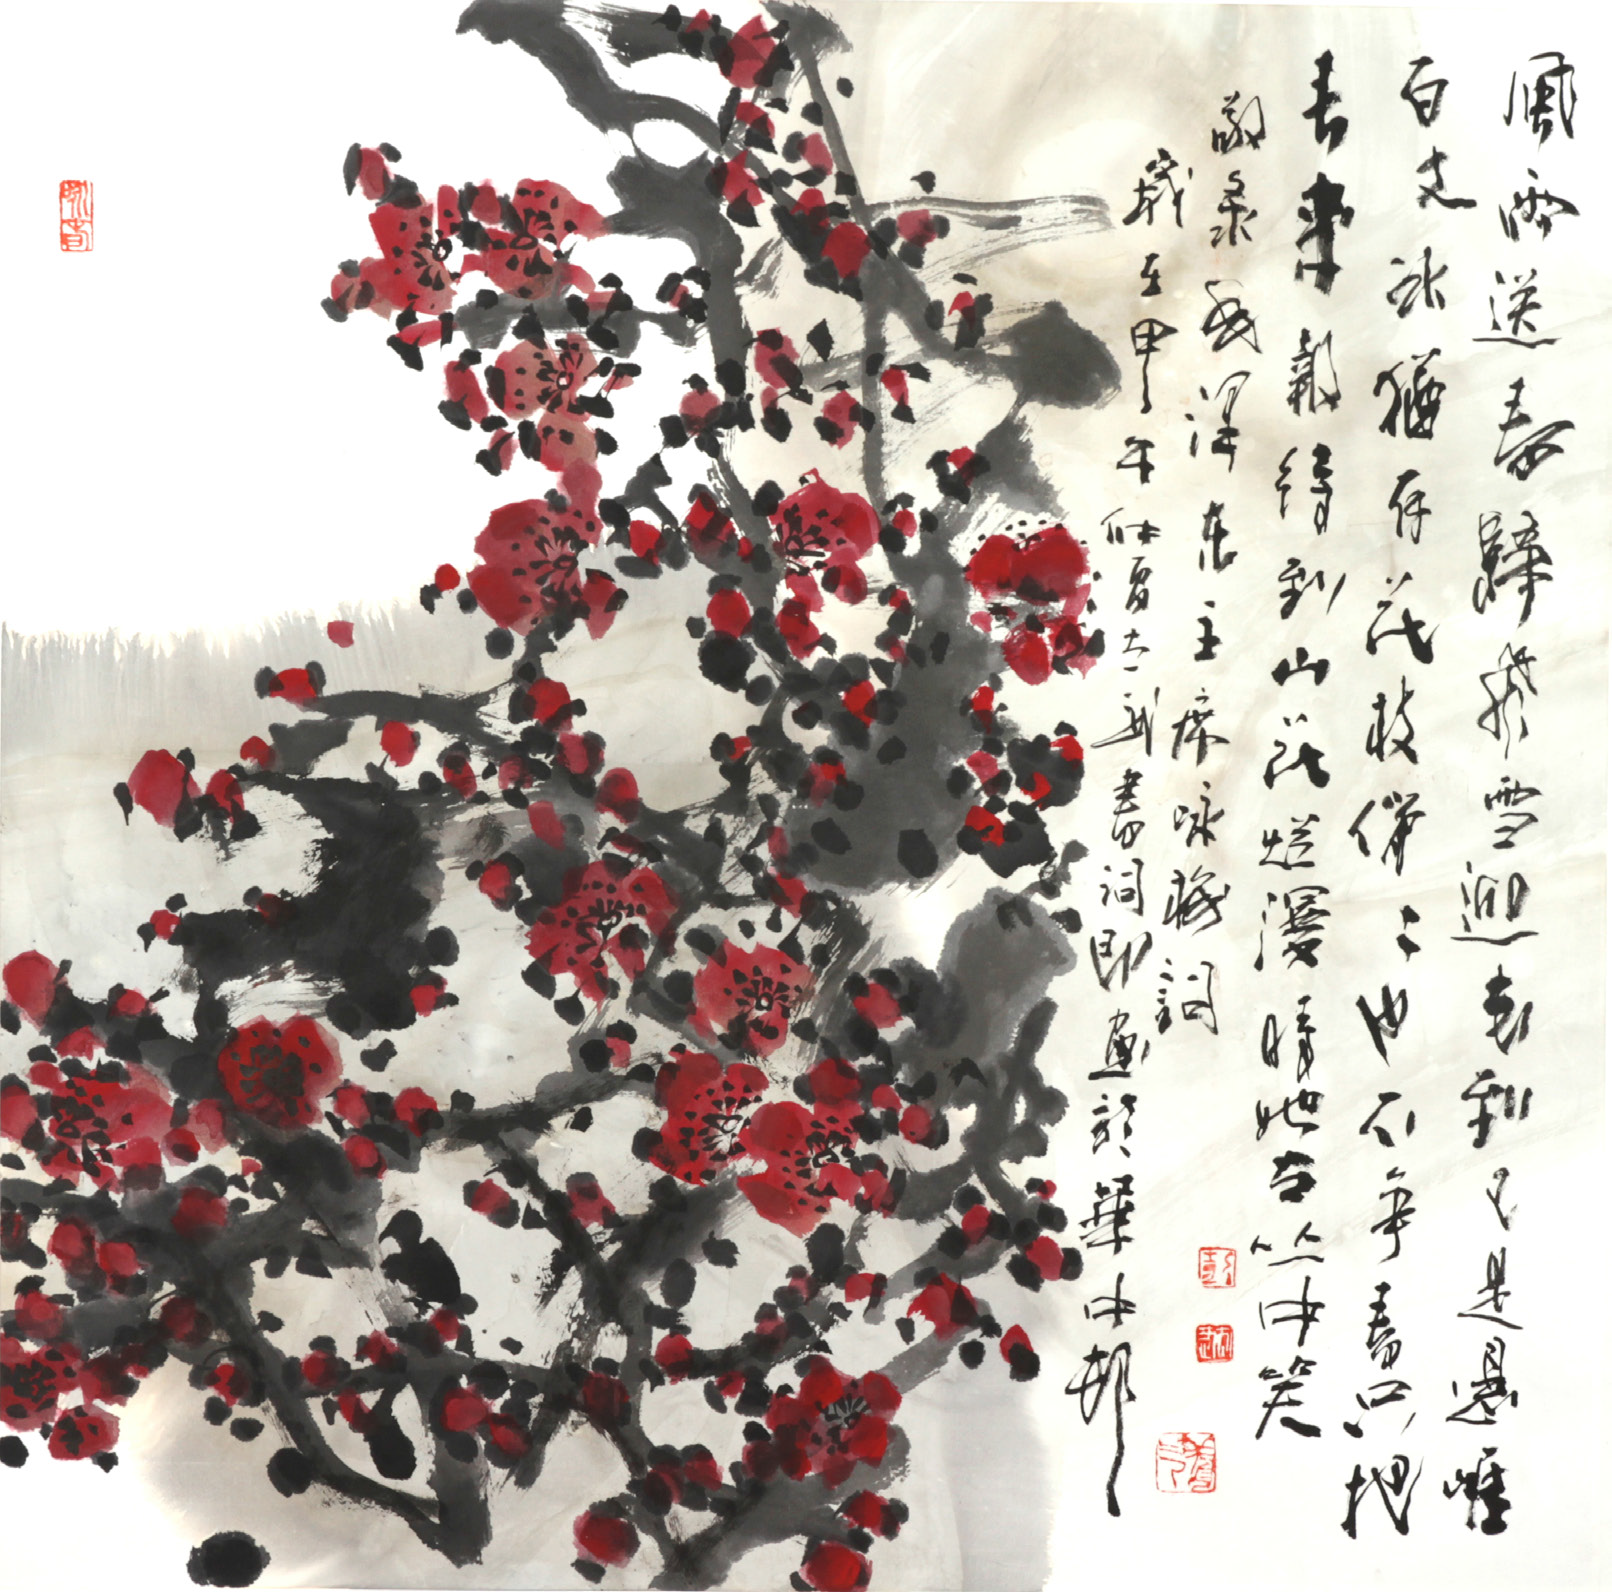 風雨送春歸飛雪迎春到已是懸崖
百丈冰猶有花枝俏〻也不爭春只把
春來報待到山花烂漫時她在丛中笑
敬录毛澤东主席咏梅詞
歲在甲午仲夏書詞即画於華中村